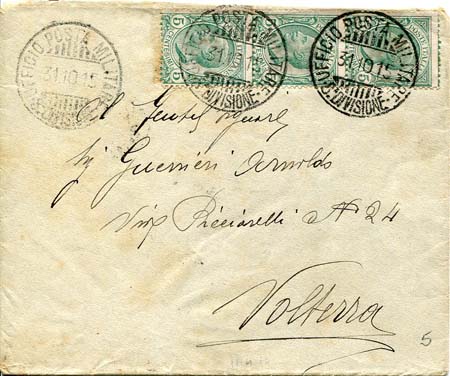 UFFICIO POSTA MILITARE
31.10.15
DIVISIONE
5
5
5
UFFICIO POSTA MILITARE
31.10.15
DIVISIONE
UFFICIO POSTA MILITARE
31.10.15
DIVISIONE
Al
Guerrieri Arnoldo
Via Ricciarelli N 24
Volterra
5